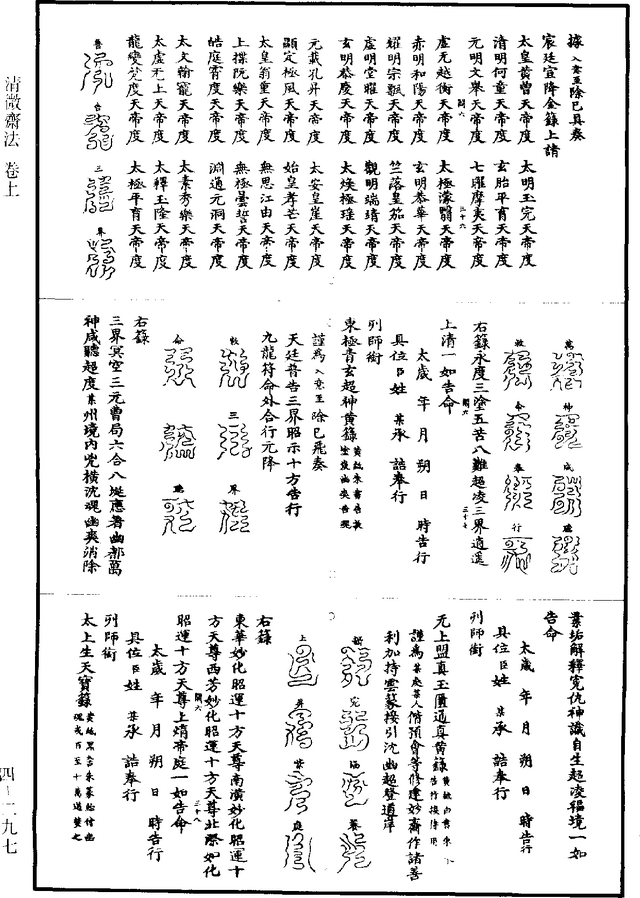 據入意至除已具奏
宸廷宣降金籙上請
太皇黃曾天帝度　太明玉完天帝度
清明何童天帝度　玄胎平育天帝度
元明文舉天帝度　七曜摩夷天帝度
虛无越衡天帝度　太極濛翳天帝度
赤明和陽天帝度　玄明恭華天帝度
耀明宗飄天帝度　竺落皇笳天帝度
虛明堂曜天帝度　觀明端靖天帝度
玄明恭慶天帝度　太煥極瑤天帝度
元載孔昇天帝度　太安皇崖天帝度
顯定極風天帝度　始皇孝芒天帝度
太皇翁重天帝度　無思江由天帝度
上揲阮樂天帝度　無極曇誓天帝度
皓庭霄度天帝度　淵通元洞天帝度
太文翰寵天帝度　太素秀樂天帝度
太虛无上天帝度　太釋玉隆天帝度
龍變梵度天帝度　太極平育天帝度
普　告　三　界
萬　神　咸　聽
敕　命　奉　行
右籙永度三塗五苦八難超凌三界逍遥
上清一如告命
太歲　年　月　朔　日　時告行
具位臣姓　某承　誥奉行
列師銜
東極青玄超神黃籙
謹為入意至除已飛奏
天廷普告三界昭示十方告行
九龍符命外合行元降
敕　三　界
命　　　聽
右籙
三界冥空三元曹局六合八埏應著幽都萬
神咸聽超度某州境内兇橫沈魂幽爽消除
業垢解釋寃仇神識自生超凌福境一如
告命
太歲　年　月　朔　日　時告行
具位臣姓　某承　誥奉行
列師銜
元上盟真玉匱通真黃籙
謹為某處某人脩預會等修建妙齋作諸善
利加持雲篆接引沈幽超登道岸
上　昇　紫　庭
右籙
東華妙化昭運十方天尊南漢妙化昭運十
方天尊西芳妙化昭運十方天尊北際妙化
昭運十方天尊上煩帝庭一如告命
太歲　年　月　朔　日　時告行
具位臣姓　某承　誥奉行
列師銜
太上生天寶籙
清微齋法　卷上
四－二九七